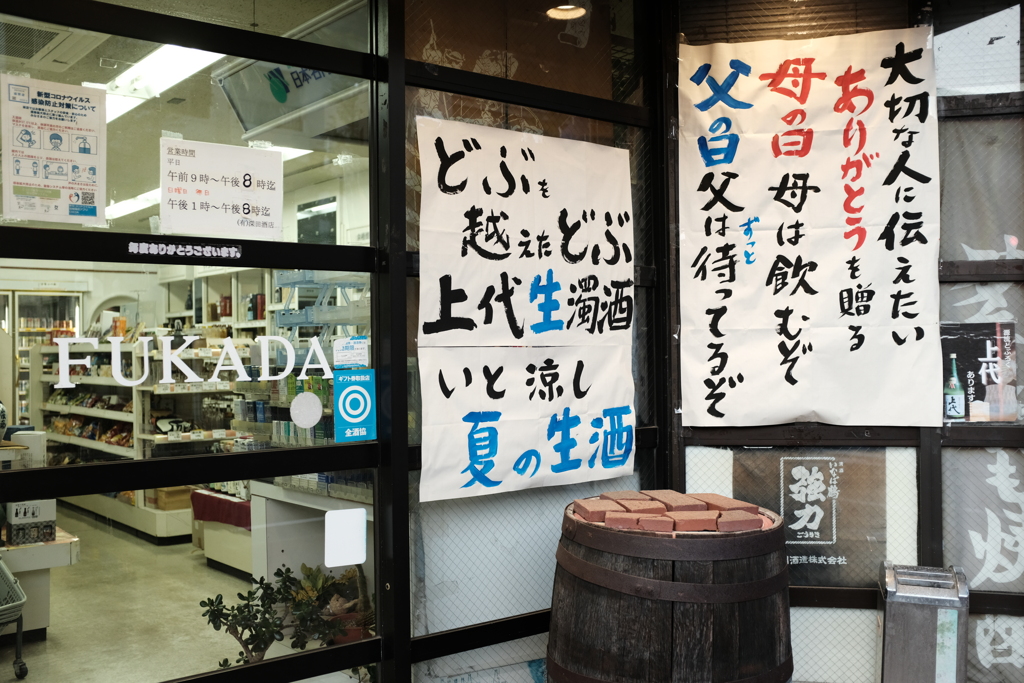 新型コロナウイルス
感染防止対策について
営業時間
平日
午前9時〜午後8時迄
日曜日 祭日
午後1時〜午後8時迄
(有)深田酒店
毎度ありがとうございます。
FUKADA
ギフト券取扱店
全酒協
どぶを
越えたどぶ
上代生濁酒
いと涼し
夏の生酒
大切な人に伝えたい
ありがとうを贈る
母の日 母は飲むぞ
父の日 父はずっと待ってるぞ
上代
あります
強力
ごうりき
酒造株式会社